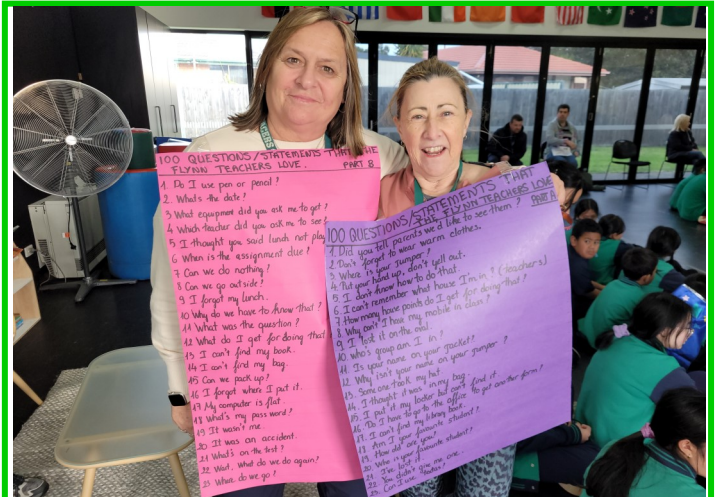 100 QUESTIONS/STATEMENTS THAT THE
FLYNN TEACHERS LOVE. PART B
1. Do I use pen or pencil?
2. Whats the date?
3 What equipment did you ask me to get?
4 Which teacher did you ask me to see?
5 I thought you said lunch not play
6 When is the assignment due?
7 Can we do nothing?
8 Can we go outside?
9 I forgot my lunch.
10 Why do we have to know that?
11 What was the question?
12 What do I get for doing that
13 I can't find my book.
14 I can't find my bag.
15 Can we pack up?
16 I forgot where I put it.
17 My computer is flat.
18 What's my pass word?
19 It wasn't me.
20 It was an accident.
21 What's on the test?
22 Wait. What do we do again?
23 Where do we go?
100 QUESTIONS/STATEMENTS THAT
THE FLYNN TEACHERS LOVE
PART A
1. Did you tell parents we'd like to see them?
2. Don't forget to wear warm clothes.
3. Where is your jumper?
4. Put your hand up, don't yell out.
5. I don't know how to do that.
6. I can't remember what house I'm in? (teachers)
7 How many house points do I get for doing that?
8 Why can't I have my mobile in class?
9 I lost it on the oval.
10 who's group am I in?
11 Is your name on your Jacket?
12 Why isn't your name on your Jumper?
13. Some one took my hat
14. I thought it was in my bag.
15. I put it my locker but can't find it.
16. Do I have to go to the office to get another form?
17. I can't find my library book.
18. Am I your favourite student?
19. How old are you?
20. Who is your favourite student?
21. I've lost it
22. You didn't give me one.
23. Can I use